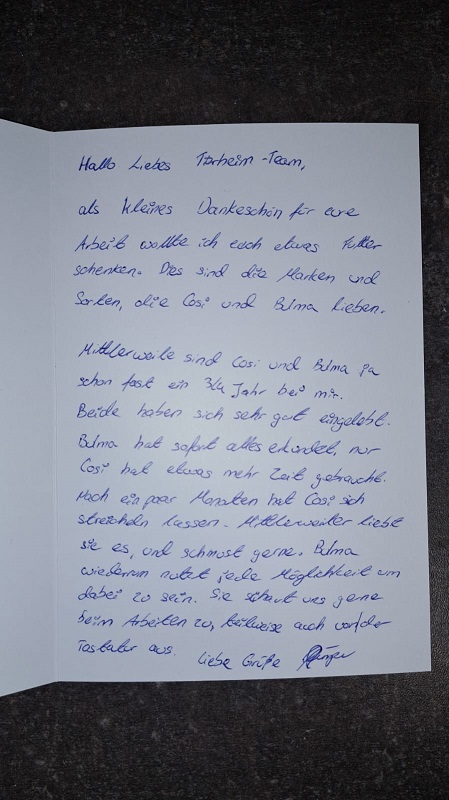 Hallo Liebes Tierheim-Team,
als kleines Dankeschön für eure
Arbeit wollte ich euch etwas Futter
schenken. Dies sind die Marken und
Sorten, die Cosi und Bulma lieben.
Mittlerweile sind Cosi und Bulma ja
schon fast ein 3/4 Jahr bei mir.
Beide haben sich sehr gut eingelebt.
Bulma hat sofort alles erkundet, nur
Cosi hat etwas mehr Zeit gebraucht.
Nach ein paar Monaten hat Cosi sich
streicheln lassen. Mittlerweiler liebt
sie es, und schmust gerne. Bulma
wiederrum nutzt jede Möglichkeit um
dabei zu sein. Sie schaut uns gerne
beim Arbeiten zu, teilweise auch von der
Tastatur aus. Liebe Grüße